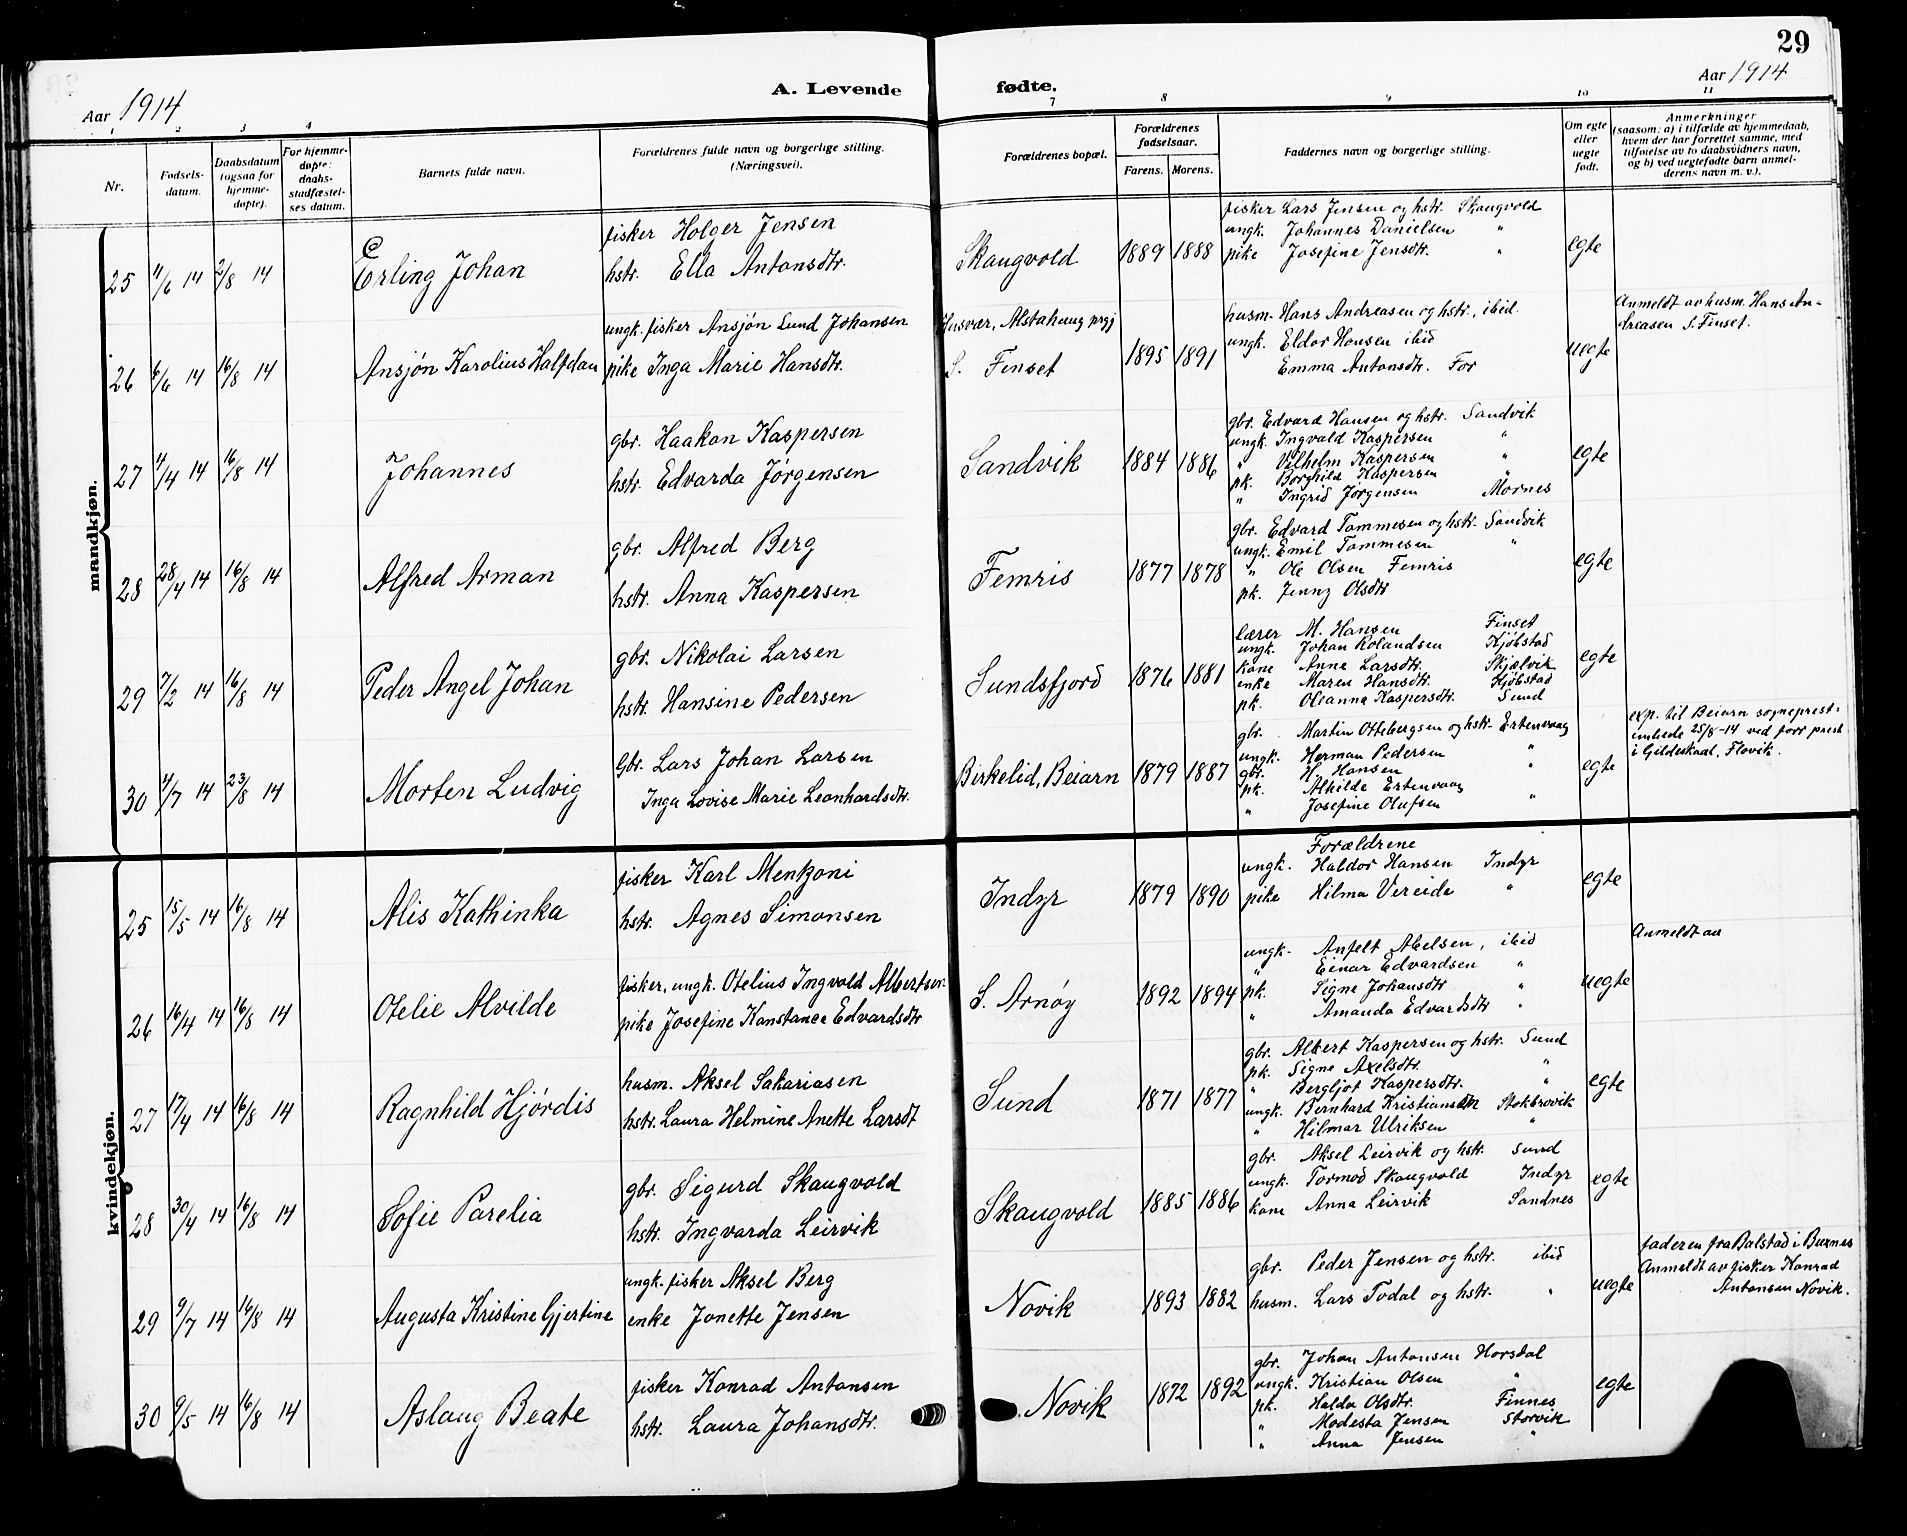 29
Aar 1914
A. Levende
fødte.
Aar 1914
1 2 3 4 7 8 9 10 11
Nr.
Fødsels-
datum.
Daabsdatum
(ogsaa for
hjemme-
døpte).
For hjemme-
døpte:
daabs-
stadfæstel-
ses datum.
Barnets fulde navn.
Forældrenes fulde navn og borgerlige stilling.
(Næringsvei).
Forældrenes bopæl.
Forældrenes
fødselsaar.
Farens. Morens.
Faddernes navn og borgerlige stilling.
Om egte
eller
uegte
født.
Anmerkninger
(saasom: a) i tilfælde av hjemmedaab,
hvem der har forrettet samme, med
tilføielse av to daabsvidners navn,
og b) ved uegtefødte barn anmel-
derens navn m. v.).
mandkjøn.
25 11/6 14 2/8 14 Erling Johan
fisker Holger Jensen
hstr. Ella Antonsdtr.
Skaugvold 1889 1888
fisker Lars Jensen og hstr. Skaugvold
ungk. Johannes Danielsen "
pike Josefine Jensdtr. "
egte
26 6/6 14 16/8 14 Ansjøn Karolius Halfdan
ungk. fisker Ansjøn Lund Johansen
pike Inga Marie Hansdtr.
Husvær, Alstahaug prgj
S. Finset 1895 1891
husm. Hans Andreasen og hstr., ibid.
ungk. Eldor Hansen ibid
Emma Antonsdtr. For
uegte
Anmeldt av husm. Hans An-
dreasen S. Finset.
27 11/4 14 16/8 14 Johannes
gbr. Haakon Kaspersen
hstr. Edvarda Jørgensen
Sandvik 1884 1886
gbr. Edvard Hansen og hstr. Sandvik
ungk. Ingvald Kaspersen "
" Vilhelm Kaspersen "
pk. Borghild Kaspersen "
" Ingrid Jørgensen Mornes
egte
28 28/4 14 16/8 14 Alfred Arman
gbr. Alfred Berg
hstr. Anna Kaspersen
Femris 1877 1878
gbr. Edvard Tommesen og hstr. Sandvik
ungk. Emil Tommesen "
" Ole Olsen Femris
pk. Jenny Olsdtr
egte
29 7/2 14 16/8 14 Peder Angel Johan
gbr. Nikolai Larsen
hstr. Hansine Pedersen
Sundsfjord 1876 1881
lærer M. Hansen Finset
ungk. Johan Rolandsen Kjøbstad
kone Anne Larsdtr. Skjælvik
enke Maren Hansdtr. Kjøbstad
pk. Olianna Kaspersdtr. Sund
egte
30 11/7 14 23/8 14 Morten Ludvig
Gbr. Lars Johan Larsen
Inga Lovise Marie Leonhardsdtr.
Birkelid, Beiarn 1879 1887
gbr. Martin Ottebergsen og hstr. Ertenvaag
ungk. Herman Pedersen "
gbr. H. Hansen "
pk. Alhilde Ertenvaag
" Josefine Olufsen "
egte
exp. til Beiarn sogneprest-
imbede 25/8-14 ved forr prest
i Gildeskaal, Flovik.
kvindekjøn.
25 15/5 14 16/8 14 Alis Kathinka
fisker Karl Mentzoni
hstr. Agnes Simonsen
Indyr 1879 1890
Forældrene
ungk. Haldor Hansen Indyr
pike Hilma Vereide "
egte
26 16/4 14 16/8 14 Otelie Alvilde
fisker, ungk. Otelius Ingvald Albertsen
pike Josefine Konstance Edvardsdtr
S. Arnøy 1892 1894
ungk. Anfelt Abelsen, ibid
" Einar Edvardsen "
pk. Signe Johansdtr "
" Amanda Edvardsdtr "
uegte
Anmeldt av
27 17/4 14 16/8 14 Ragnhild Hjørdis
husm. Aksel Sakariasen
hstr. Laura Helmine Anette Larsdt
Sund 1871 1877
gbr. Albert Kaspersen og hstr. Sund
pk. Signe Axelsdtr. "
" Bergljot Kaspersdtr. "
ungk. Bernhard Kristiansen Stokbrovik
" Hilmar Ulriksen "
egte
28 30/4 14 16/8 14 Sofie Parelia
gbr. Sigurd Skaugvold
hstr. Ingvarda Leirvik
Skaugvold 1885 1886
gbr. Aksel Leirvik og hstr. Sund
ungk. Tormod Skaugvold Indyr
kone Anna Leirvik Sandnes
egte
29 9/7 14 16/8 14 Augusta Kristine Gjertine
ungk. fisker Aksel Berg
enke Jonette Jensen
Novik 1893 1882
gbr. Peder Jensen og hstr. ibid
husm. Lars Todal og hstr. "
uegte
faderen fra Balstad i Buxnes
Anmeldt av fisker Konrad
Antonsen Novik.
30 9/5 14 16/8 14 Aslaug Beate
fisker Konrad Antonsen
hstr. Laura Johansdtr.
Novik 1872 1892
gbr. Johan Antonsen Horsdal
ungk. Kristian Olsen "
pk. Halda Olsdtr. Finnes
" Modesta Jensen Storvik
" Anna Jensen "
egte